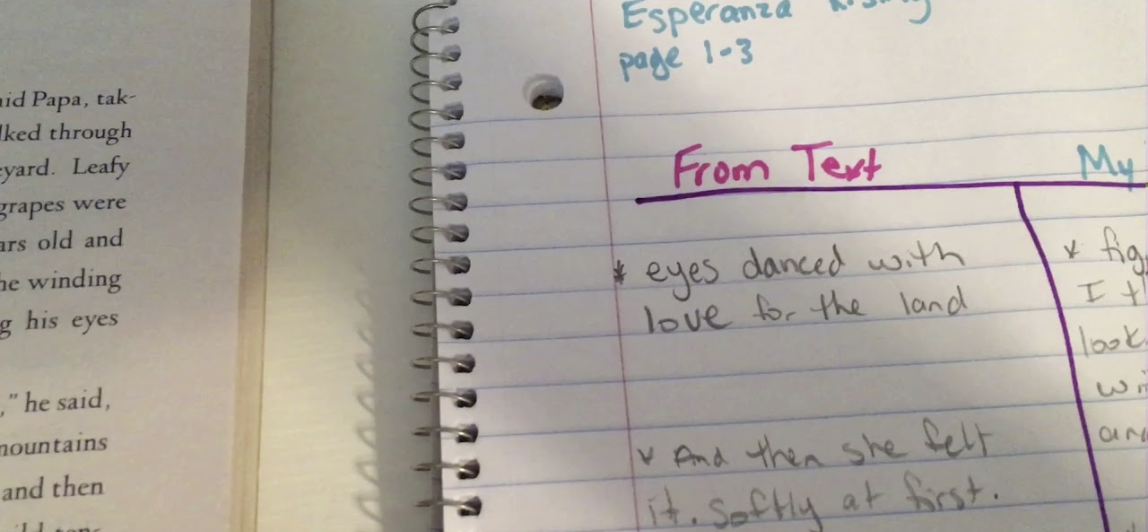 aid Papa, tak-
lked through
yard. Leafy
grapes were
ars old and
he winding
g his eyes
," he said,
mountains
and then
Esperanza Rising
page 1-3
From Text
My
* eyes danced with
love for the land
* And then she felt
it. softly at first.
* fig
I t
look
wi
and